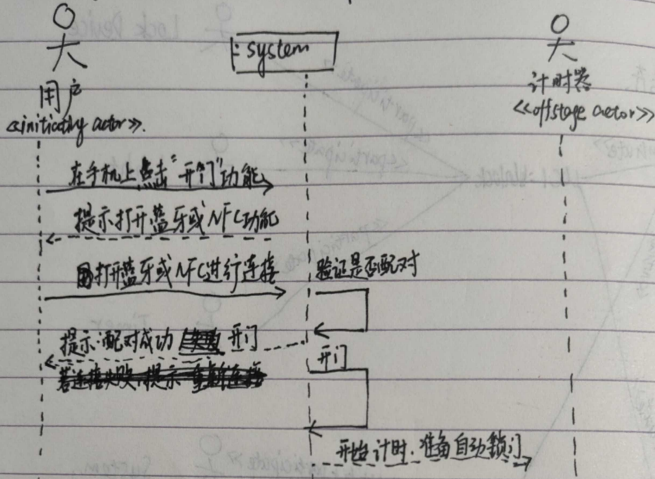 :system
用户
<<initiating actor>>.
计时器
<<offstage actor>>
在手机上点击"开门"功能
提示打开蓝牙或NFC功能
打开蓝牙或NFC进行连接
验证是否配对
提示:配对成功 开门
开门
若连接失败,提示重新连接
开始计时.准备自动锁门